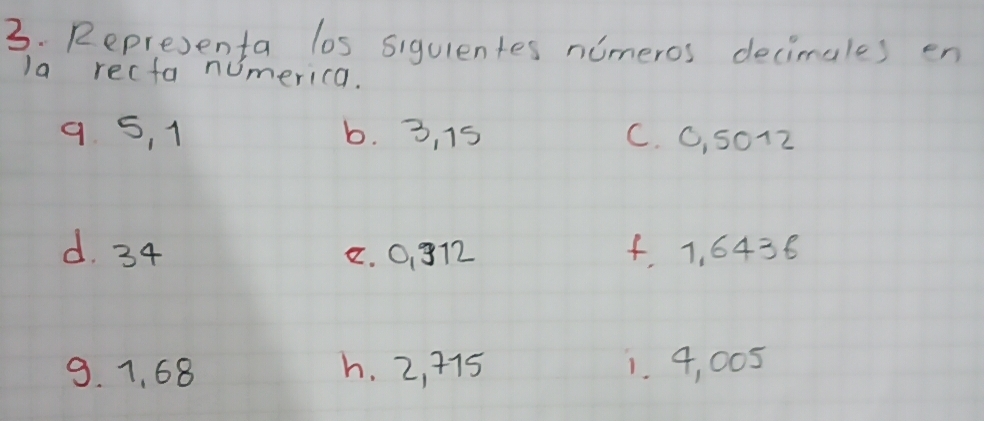 3. Representa los siguientes números decimales en
la recta númerica.
a. 5,1 b. 3,15 c. 0,5012
d. 34 e. 0,312 f. 1,6436
g. 1,68 h. 2,715 i. 4,005